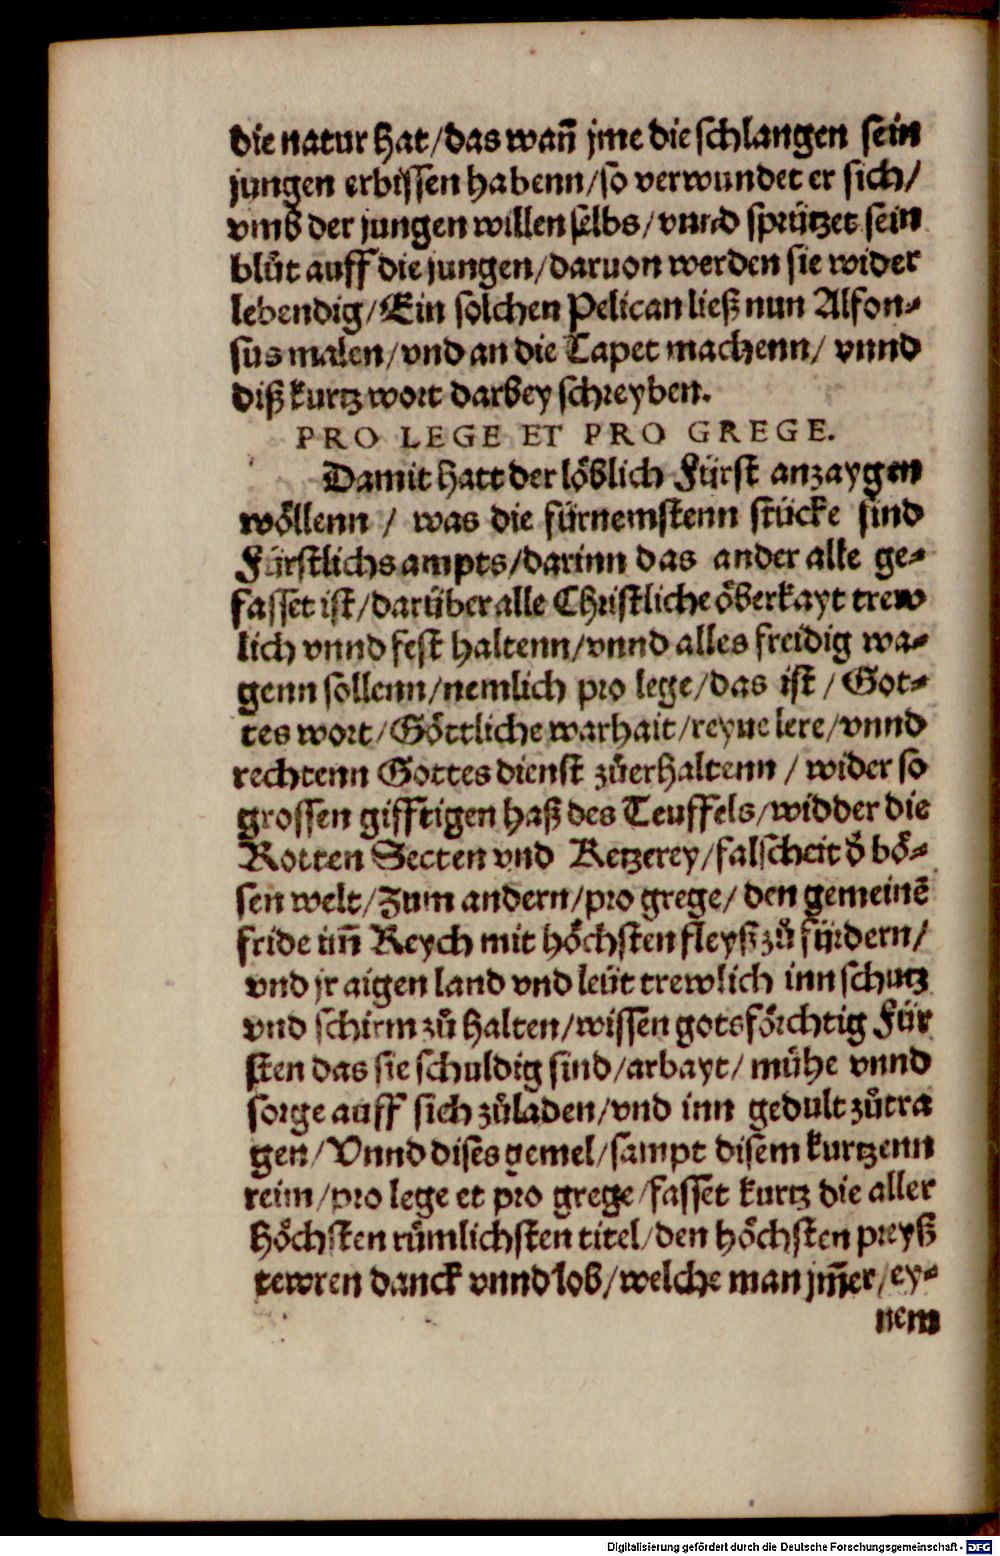 die natur hat/das wañ jme die schlangen sein
jungen erbissen habenn/so verwundet er sich/
vmb der jungen willen selbs/vnnd sprützet sein
blůt auff die jungen/daruon werden sie wider
lebendig/Ein solchen Pelican ließ nun Alfon-
sus malen/vnd an die Tapet machenn/ vnnd
diß kurtz wort darbey schreyben.
PRO LEGE ET PRO GREGE.
Damit hatt der löblich Fürst anzaygen
wöllenn / was die fürnemstenn stücke sind
Fürstlichs ampts/darinn das ander alle ge-
fasset ist/darüber alle Christliche öberkayt trew
lich vnnd fest haltenn/vnnd alles freidig wa-
genn sollenn/nemlich pro lege/das ist / Got-
tes wort/Göttliche warhait/reyne lere/vnnd
rechtenn Gottes dienst zůerhaltenn / wider so
grossen gifftigen haß des Teuffels/widder die
Rotten Secten vnd Ketzerey/falscheit d̕ bö-
sen welt/Zum andern/pro grege/ den gemeinē
fride im̃ Reych mit höchsten fleyß zů fürdern/
vnd jr aigen land vnd leüt trewlich inn schutz
vnd schirm zů halten/wissen gotsförchtig Für
sten das sie schuldig sind/arbayt/ mühe vnnd
sorge auff sich zůladen/vnd inn gedult zůtra
gen/Vnnd dises gemel/sampt disem kurtzenn
reim/pro lege et pro grege/fasset kurtz die aller
höchsten růmlichsten titel/den höchsten preyß
tewren danck vnnd lob/welche man jm̃er/ey-
nem
Digitalisierung gefördert durch die Deutsche Forschungsgemeinschaft - DFG